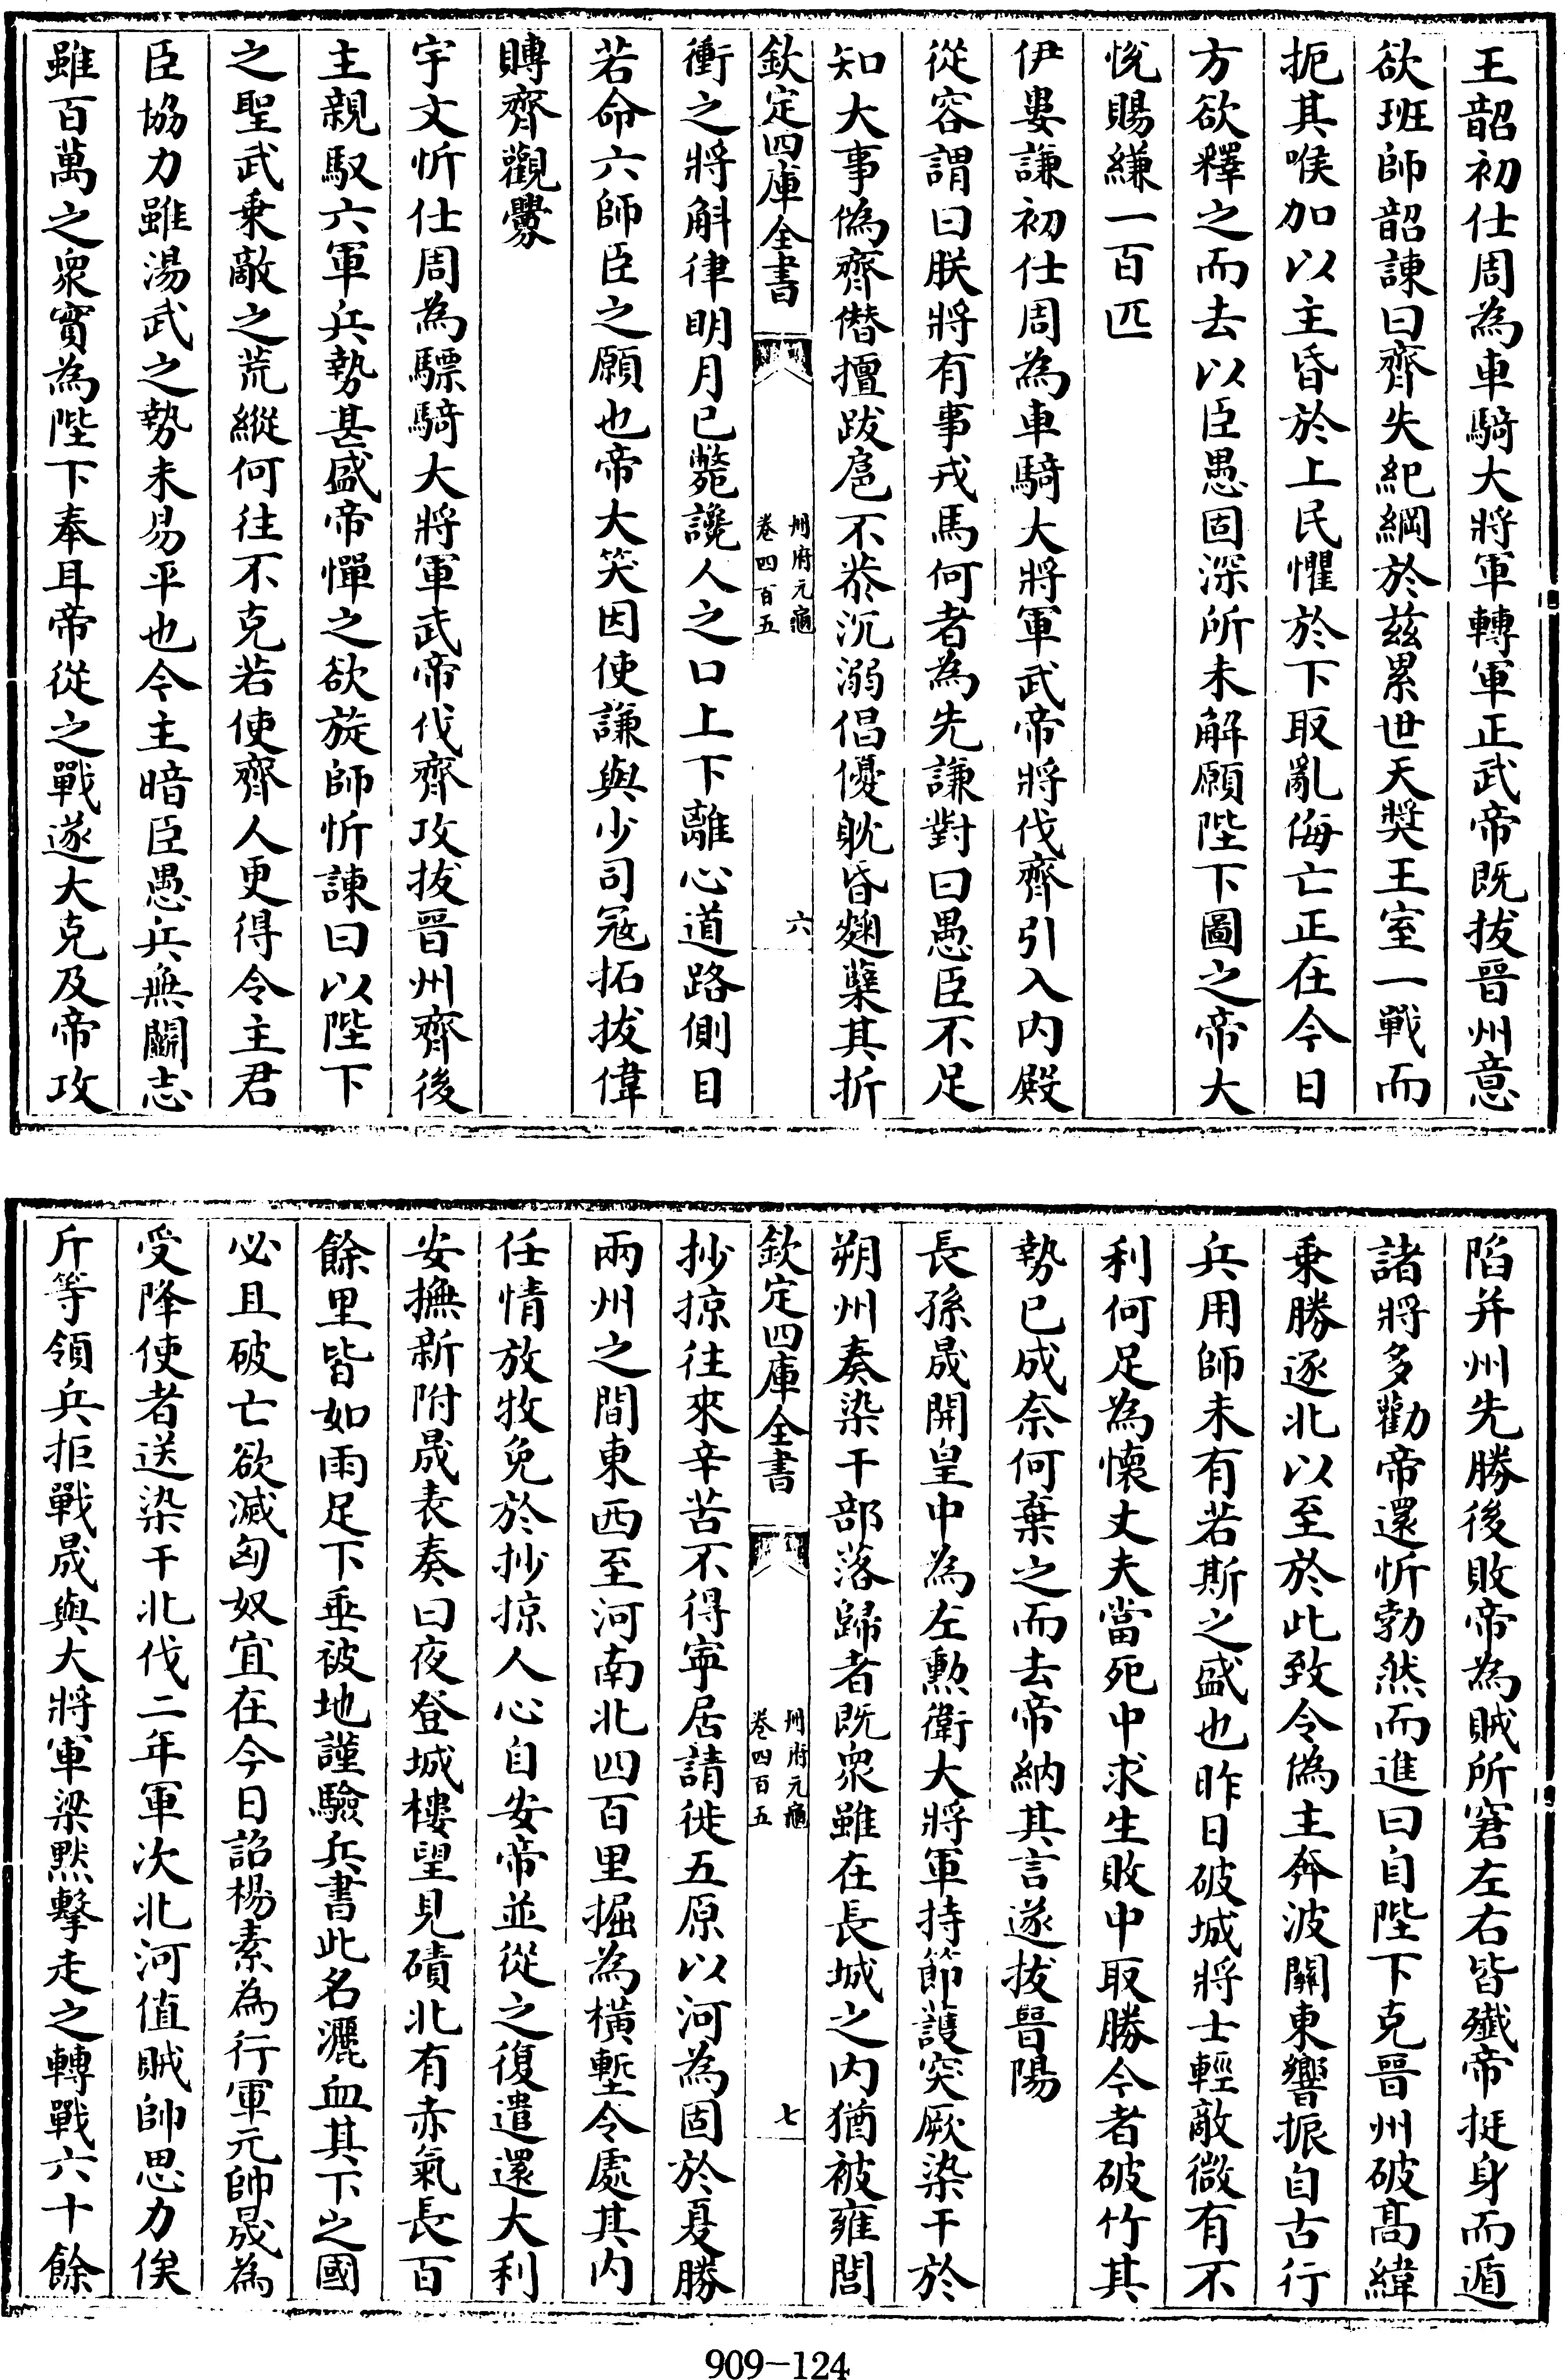 王韶初仕周為車騎大將軍轉軍正武帝既拔晉州意
欲班師韶諌曰齊失紀綱於兹累世天奬王室一戰而
扼其喉加以主昏於上民懼於下取亂侮亡正在今日
方欲釋之而去以臣愚固深所未解願陛下圖之帝大
悅賜縑一百匹
伊婁謙初仕周為車騎大將軍武帝將伐齊引入内殿
從容謂曰朕將有事戎馬何者為先謙對曰愚臣不足
知大事偽齊僭擅跋扈不恭沉溺倡優躭昏麴糵其折
欽定四庫全書
册府元龜
卷四百五
六
衝之將斛律明月已斃讒人之口上下離心道路側目
若命六師臣之願也帝大笑因使謙與少司冦拓拔偉
賻齊觀釁
宇文忻仕周為驃騎大將軍武帝伐齊攻拔晉州齊後
主親馭六軍兵勢甚盛帝憚之欲旋師忻諌曰以陛下
之聖武乗敵之荒縱何往不克若使齊人更得令主君
臣協力雖湯武之勢未易平也今主暗臣愚兵無鬭志
雖百萬之衆實為陛下奉耳帝從之戰遂大克及帝攻
陷并州先勝後敗帝為賊所窘左右皆殲帝挺身而遁
諸將多勸帝還忻勃然而進曰自陛下克晉州破髙緯
乗勝逐北以至於此致令偽主奔波關東響振自古行
兵用師未有若斯之盛也昨日破城將士輕敵微有不
利何足為懷丈夫當死中求生敗中取勝今者破竹其
勢已成奈何棄之而去帝納其言遂拔晉陽
長孫晟開皇中為左勲衛大將軍持節護突厥染干於
朔州奏染干部落歸者既衆雖在長城之内猶被雍閭
欽定四庫全書
册府元龜
卷四百五
七
抄掠往來辛苦不得寧居請徙五原以河為固於夏勝
兩州之間東西至河南北四百里掘為横塹令處其内
任情放牧免於抄掠人心自安帝並從之復遣還大利
安撫新附晟表奏曰夜登城樓望見磧北有赤氣長百
餘里皆如雨足下垂被地謹驗兵書此名灑血其下之國
必且破亡欲滅匈奴宜在今日詔楊素為行軍元帥晟為
受降使者送染干北伐二年軍次北河值賊帥思力俟
斤等領兵拒戰晟與大將軍梁黙擊走之轉戰六十餘
909-124